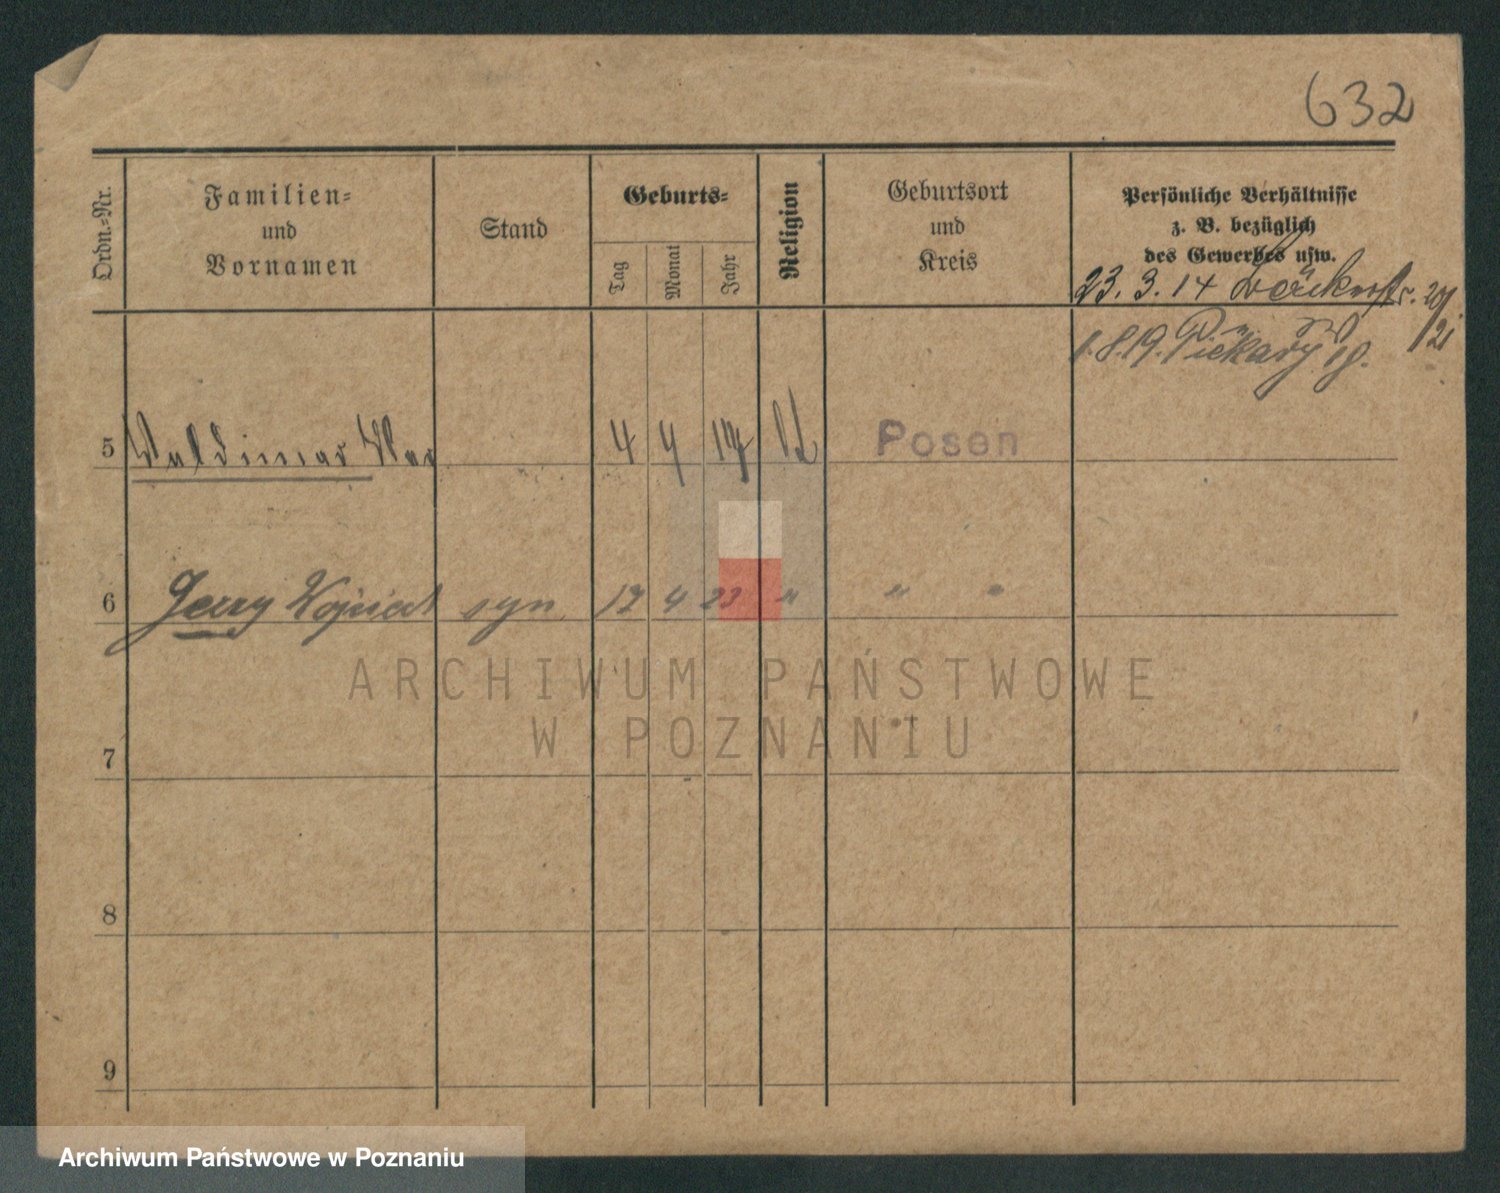 632
Ordn.-Nr.
Familien-
und
Vornamen
Stand
Geburts-
Tag
Monat
Jahr
Religion
Geburtsort
und
Kreis
Persönliche Verhältnisse
z. B. bezüglich
des Gewerbes usw.
23. 3. 14
1.8.19. Piekary 19.
5 Waldimar 4 Posen
6 Jerzy Wojciech syn 17 4 23 " " "
ARCHIWUM PAŃSTWOWE
W POZNANIU
7
8
9
Archiwum Państwowe w Poznaniu